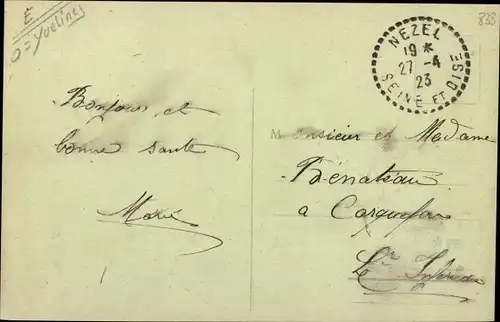 E
O = Yvelines
838
NEZEL
19 *
27 - 4
23
SEINE ET OISE
Bonjour et
bonne santé
Marie
Monsieur et Madame
Bénateau
a Carquefou
Lre Infrieure